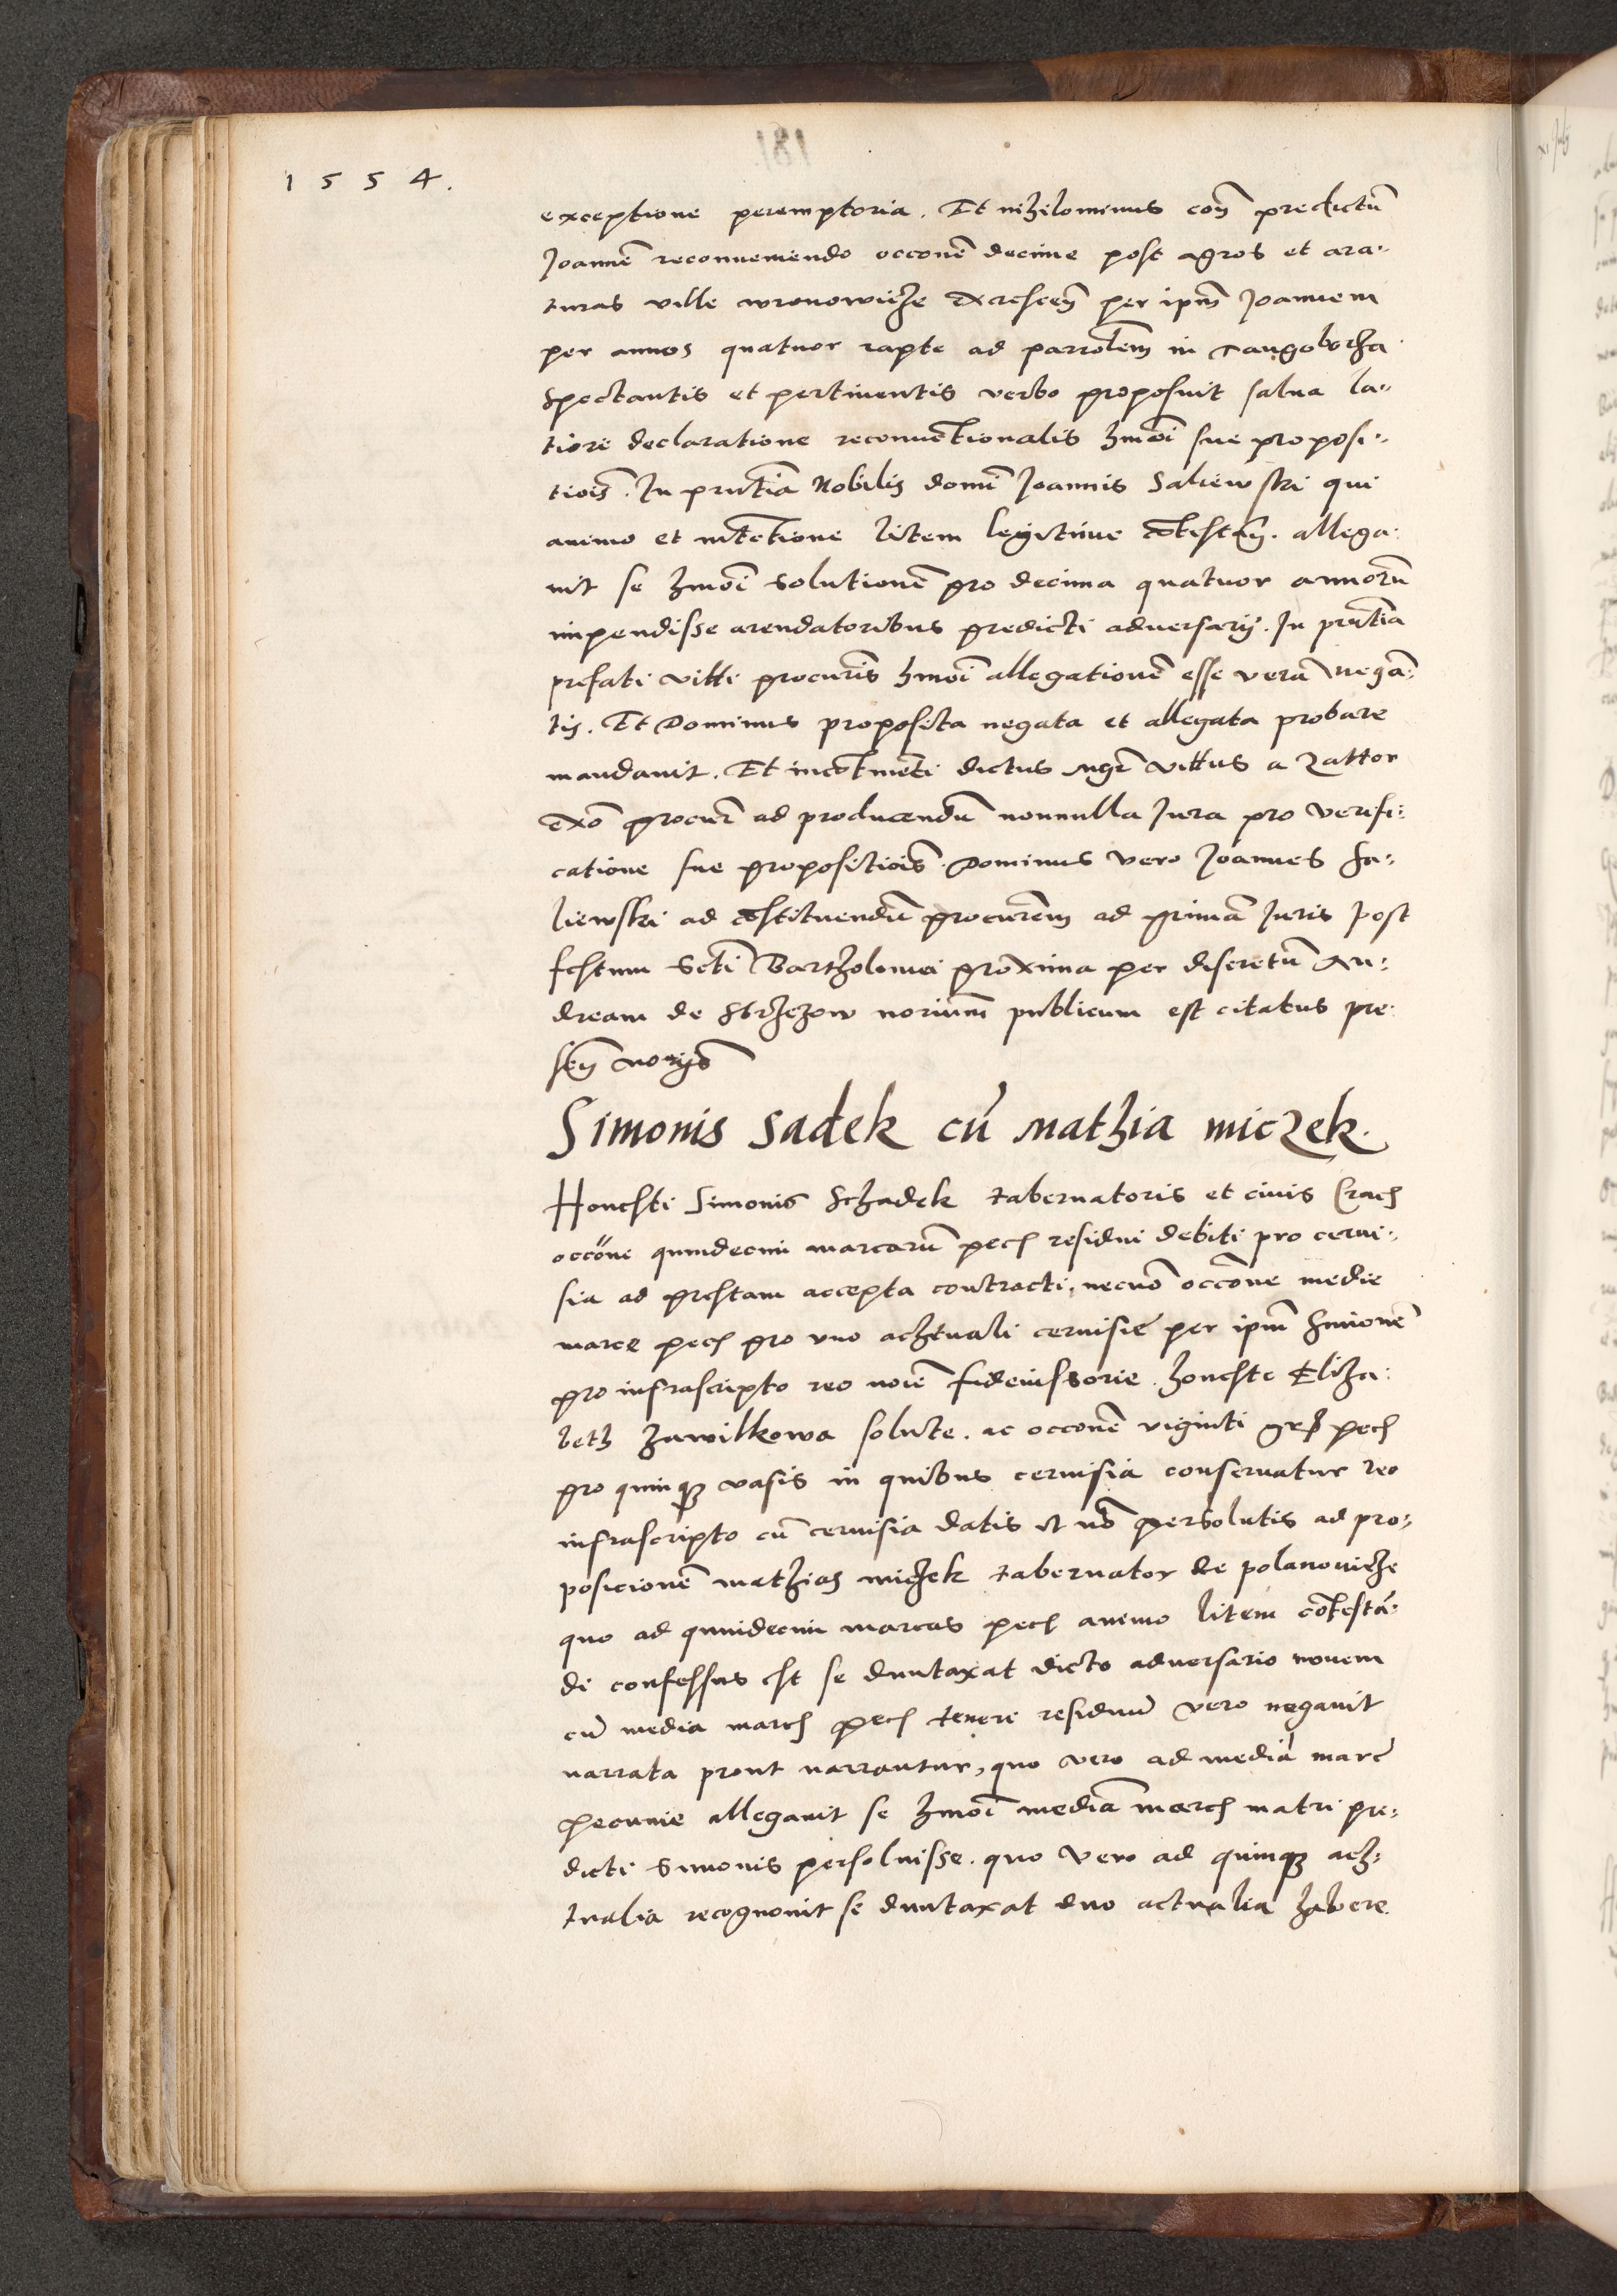 1554.
exceptione peremptoria. Et nihilominus coñ predictũ
Joannẽ reconueniendo occonẽ decime post agros et ara-
turas ville wronowicze excrescen̄ per ipm̃ Joannem
per annos quatuor rapte ad parrotem̃ in Tangoborza
spectantis et pertinentis verbo proposuit salua la-
tiori declaratione reconuẽtionalis hmõi sue proposi-
tiois̃. In pñtia Nobilis domĩ Joannis Saliewski qui
animo et intẽtione litem legittime cõtestañ. allega-
uit se hmõi solutionẽ pro decima quatuor annorũ
impendisse arendatoribus predicti aduersarij. In pñtia
prefati Vitti procuris̃ hmõi allegationẽ esse verã negã-
tis. Et Dominus proposita negata et allegata probare
mandauit. Et incõtinẽti dictus mgr̃ Vittus a Zattor
exõ procur̃ ad producendũ nonnulla Jura pro verifi-
catione sue propositiois̃. Dominus vero Joannes Sa-
liewski ad cõstituendũ procurem̃ ad primã Juris post
festum Scti Bartholomei proxima per discretũ An-
dream de Strzezow norium̃ publicum est citatus pre-
señ
Simonis Sadek cũ Mathia miczek.
Honesti Simonis Schadek tabernatoris et ciuis Crac
occõne quindecim marcarũ pec residui debiti pro cerui-
sia ad prestam accepta contracti, necnõ occõne medie
marce pec pro vno achtuali ceruisie per ipm̃ Simonẽ
pro infrascripto reo noĩe fideiussorie. honeste Eliza-
beth Zawilkowa solute. ac occonẽ viginti gr pec
pro quinqz vasis in quibus ceruisia conseruatur reo
infrascripto cũ ceruisia datis et nõ persolutis ad pro-
posicionẽ mathias miczek tabernator de polanowicze
quo ad quindecim marcas pec animo litem cõtestã-
di confessus est se duntaxat dicto aduersario nouem
cũ media marc pec tenere residuũ vero negauit
narrata prout narrantur, quo vero ad mediã marc
pecunie allegauit se hmõi mediã marc matri pre-
dicti Simonis persoluisse. quo vero ad quinqz ach-
tualia recognouit se duntaxat duo actualia habere